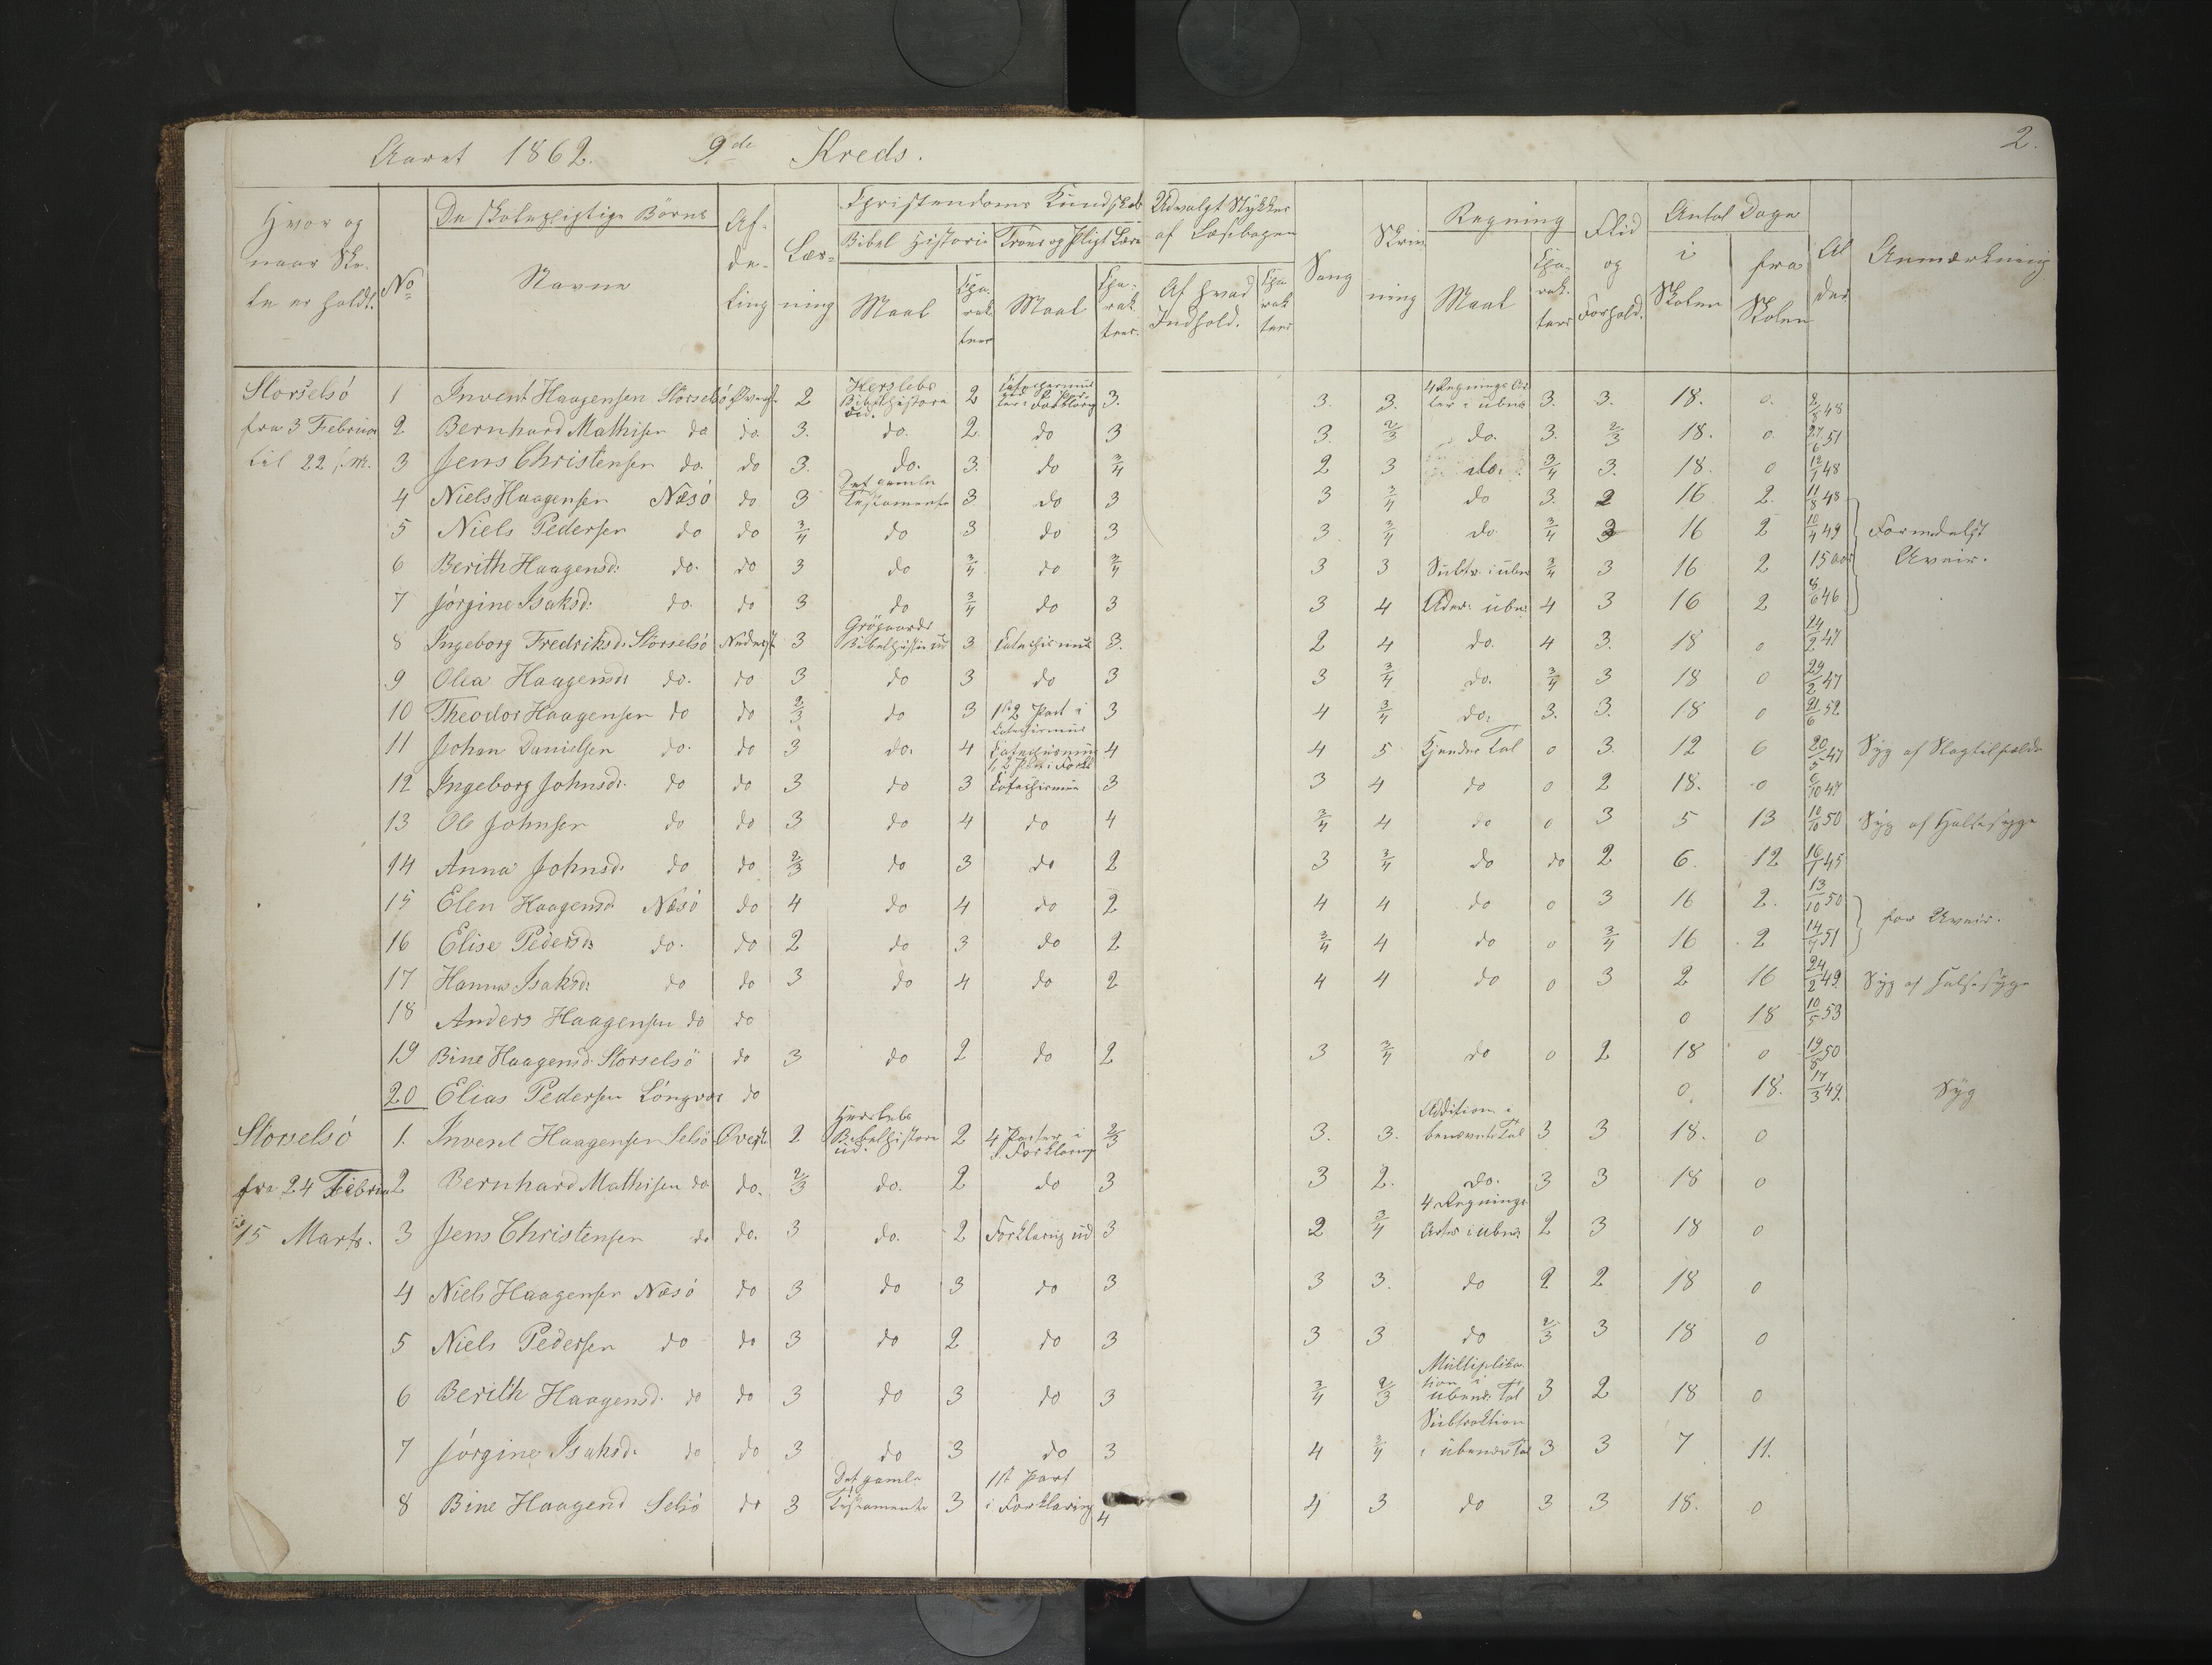 Aaret 1862. 9de Kreds.
2.
Hvor og naar Skolen er holdt.
No
De skolepligtige Börns Navne
Afdeling
Læsning
Christendoms Kundskab
Bibel Historie Maal Charakteer
Troes og Pligt Lære Maal Charakteer
Udvalgt Stykker af Læsebogen
Af hvad Indhold. Charakteer
Sang
Skrivning
Regning Maal Charakteer
Flid og Forhold.
Antal Dage i Skolen fra Skolen
Alder
Anmærkning
Storselsö fra 3 Februar til 22 s. M.
1 Invent Haagensen Storselsö Øverst 2 Herslebs Bibelhistorie ud. 2 3. 3. 3. 4 Regnings Arter i übn 3. 3. 18. 0. 2/8 48
2 Bernhard Mathisen do do. 3. do. 2. do 3 3. 2/3 do. 3. 2/3 18. 0 27/6 51
3 Jens Christensen do. do 3. do. 3. do 3/4 2 3 do. 3/4 3. 18. 0 12/1 48
4 Niels Haagensen Næsö do 3 Det gamle Testamente 3. do 3 3 3/4 do 3. 2 16 2. 11/8 48
5 Niels Pedersen do do 3/4 do 3 do 3 3 3/4 do. 3/4 3 16 2 10/4 49 Formedelst Uveir.
6 Berith Haagensd. do. do 3 do 3/4 do 3/4 3 3 Subtr. i übn 3/4 3 16 2 15 aar
7 Jörgine Isaksd. do. do 3 do 3/4 do 3 3 4 Ader. übn. 4 3 16 2 46
8 Ingeborg Fredriksd. Storselsö Nederst 3 Grögaards Bibelhistorie ud 3 Catechismus 3. 2 4 do. 4 3. 18 0 24/2 47
9 Olea Haagensd. do. do 3 do 3 do 3 3 3/4 do. 3/4 3 18 0 29/2 47
10 Theodor Haagensen do do 2/3 do 3 1st 2 Part i Catechismus 3 4 3/4 do. 3. 3. 18 0 21/6 52
11 Johan Danielsen do. do 3 do. 4 Catechismus 1, 2 Part i Forkl 4 4 5 Kjender Tal 0 3. 12 6 20/5 47 Syg af Slagtilfælde
12 Ingeborg Johnsd. do do 3 do 3 Catechismus 3 3 4 do 0 2 18. 0 6/10 47
13 Ole Johnsen do do 3 do 4 do 4 3/4 4 do 0 3 5 13 10/10 50 Syg af Halsesyge
14 Anna Johnsd. do do 2/3 do 3 do 2 3 3/4 do do 2 6. 12 16/1 45
15 Elen Haagensd Næsö do 4 do 4 do 2 4 4 do 0 3 16 2. 13/10 50 for Uveir.
16 Elise Pedersd. do. do 2 do 3 do 2 3/4 4 do 0 3/4 16 2 14/4 51
17 Hanna Isaksd. do do 3 do 4 do 2 4 4 do 0 3 2 16 24/2 49. Syg af Halsesyge
18 Anders Haagensen do do 0 18 10/5 53
19 Bine Haagensd. Storselsö do 3 do 2 do 2 3 3/4 do 0 2 18 0 19/8 50
20 Elias Pedersen Löngvær do 0. 18. 17/3 49. Syg
Storselsö fra 24 Februar til 15 Marts.
1. Invent Haagensen Selsö Øverst 2 Herslebs Bibelhistorie ud. 2 4 Parter i Forklaring 2/3 3. 3. Addition i benævnte Tal 3 3 18. 0
2 Bernhard Mathisen do do. 2/3 do. 2 do 3 3 2. do. 3 3 18 0
3 Jens Christensen do do. 3 do. 2 Forklaring ud 3 2 3/4 4 Regnings Arter i übn. 2 3 18 0
4 Niels Haagensen Næsö do 3 do 3 do 3 3 3. do 2 2 18 0
5 Niels Pedersen do do 3 do 2 do 3 3 3 do 2/3 3 18 0
6 Berith Haagensd. do do 3 do 3 do 3 3/4 2/3 Multiplikation i übenæv. Tal 3 2 18 0
7 Jörgine Isaksd. do do 3 do 3 do 3 4 3/4 Subtraktion i übenævn Tal 3 3 7 11.
8 Bine Haagensd Selsö do 3 Det gamle Testamente 3 1st Part i Forklaring 4 4 3 do 3 3 18. 0